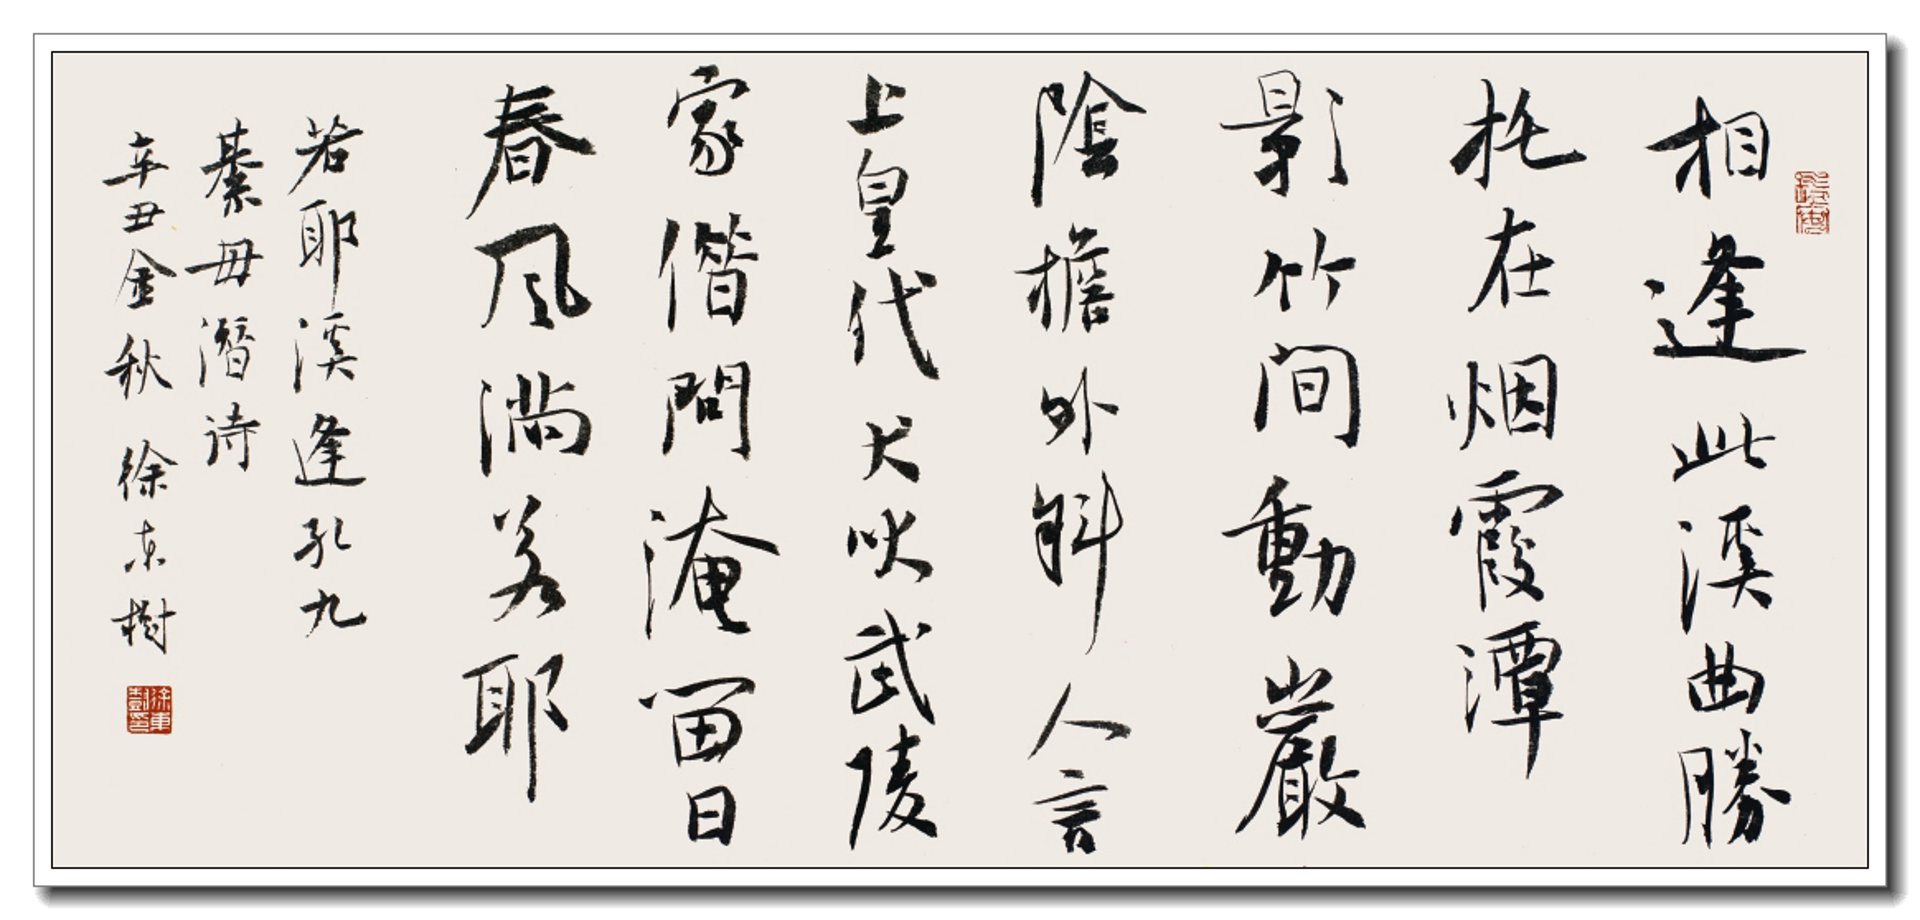 相逢此溪曲勝
托在烟霞潭
影竹間動巖
陰檐外斜人言
上皇代犬吠武陵
家借問淹留日
春風滿若耶
若耶溪逢孔九
綦毋潛诗
辛丑金秋 徐东樹
徐東樹印